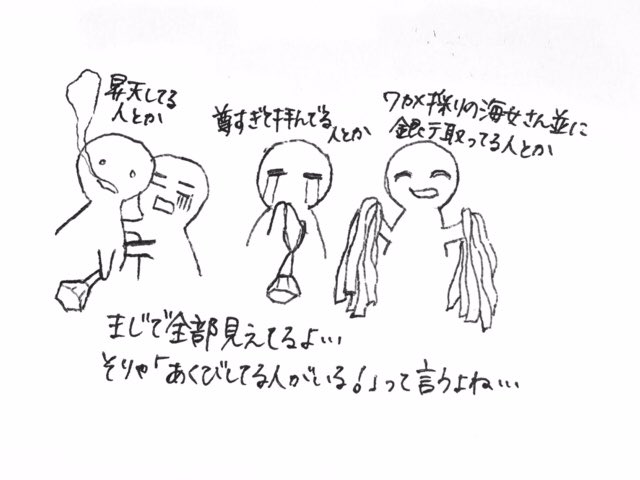 昇天してる
人とか
尊すぎて拝んでる
人とか
ワカメ採りの海女さん並に
銀テ取ってる人とか
まじで全部見えてるよ…
そりゃ「あくびしてる人がいる！」って言うよね…